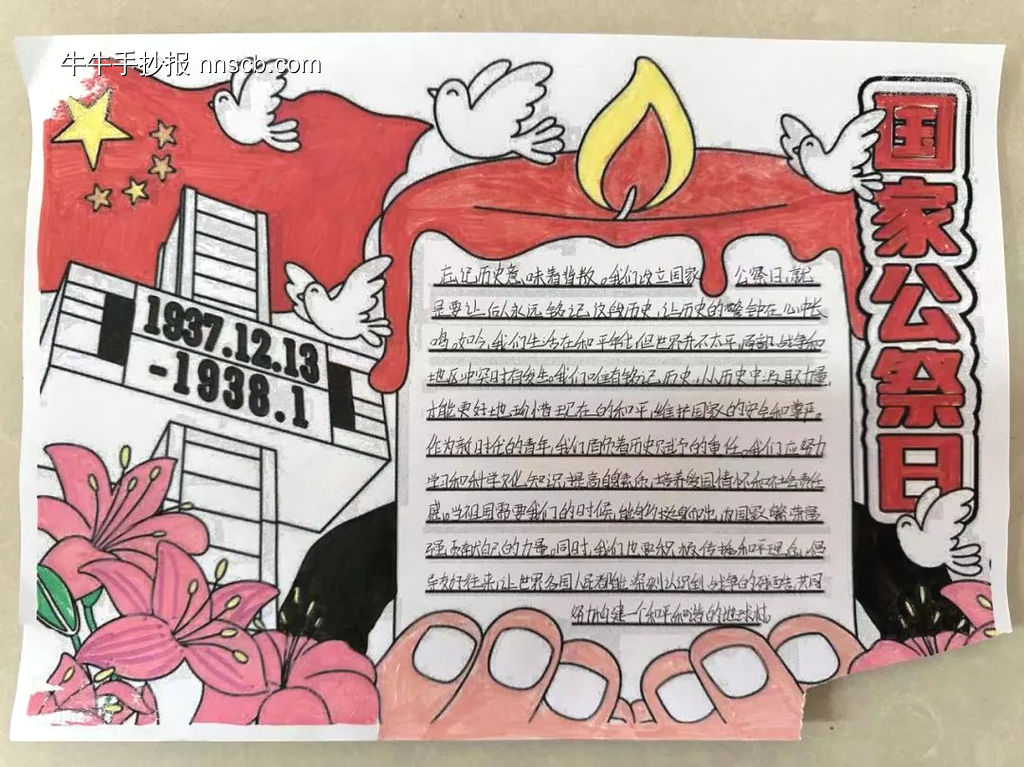 牛牛手抄报 nnscb.com
国家公祭日
1937.12.13
-1938.1
忘记历史意味着背叛。我们设立国家 公祭日,就
是要让后人永远铭记这段历史,让历史的警钟在心中长
鸣。如今,我们生活在和平年代,但世界并不太平,局部战争和
地区冲突时有发生。我们只有铭记历史,从历史中汲取力量,
才能更好地珍惜现在的和平,维护国家的安全和尊严。
作为新时代的青年,我们肩负着历史赋予的重任。我们应努力
学习和科学文化知识,提高自身素质,培养爱国情怀和社会责任
感。当祖国需要我们的时候,能够挺身而出,为国家繁荣富
强贡献自己的力量。同时,我们也要积极传播和平理念,倡
导友好往来,让世界各国人民都能深刻认识到战争的残酷,共同
努力构建一个和平和谐的地球村。